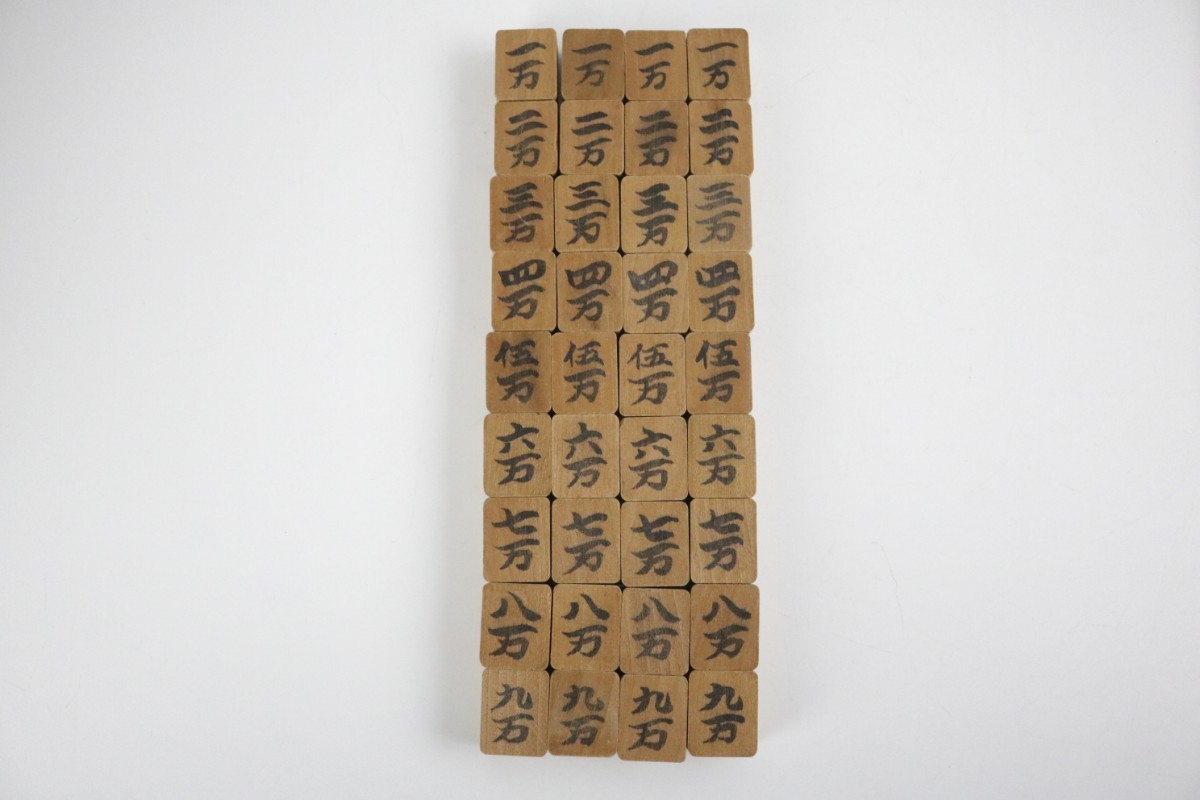 一万 一万 一万 一万
二万 二万 二万 二万
三万 三万 三万 三万
四万 四万 四万 四万
伍万 伍万 伍万 伍万
六万 六万 六万 六万
七万 七万 七万 七万
八万 八万 八万 八万
九万 九万 九万 九万